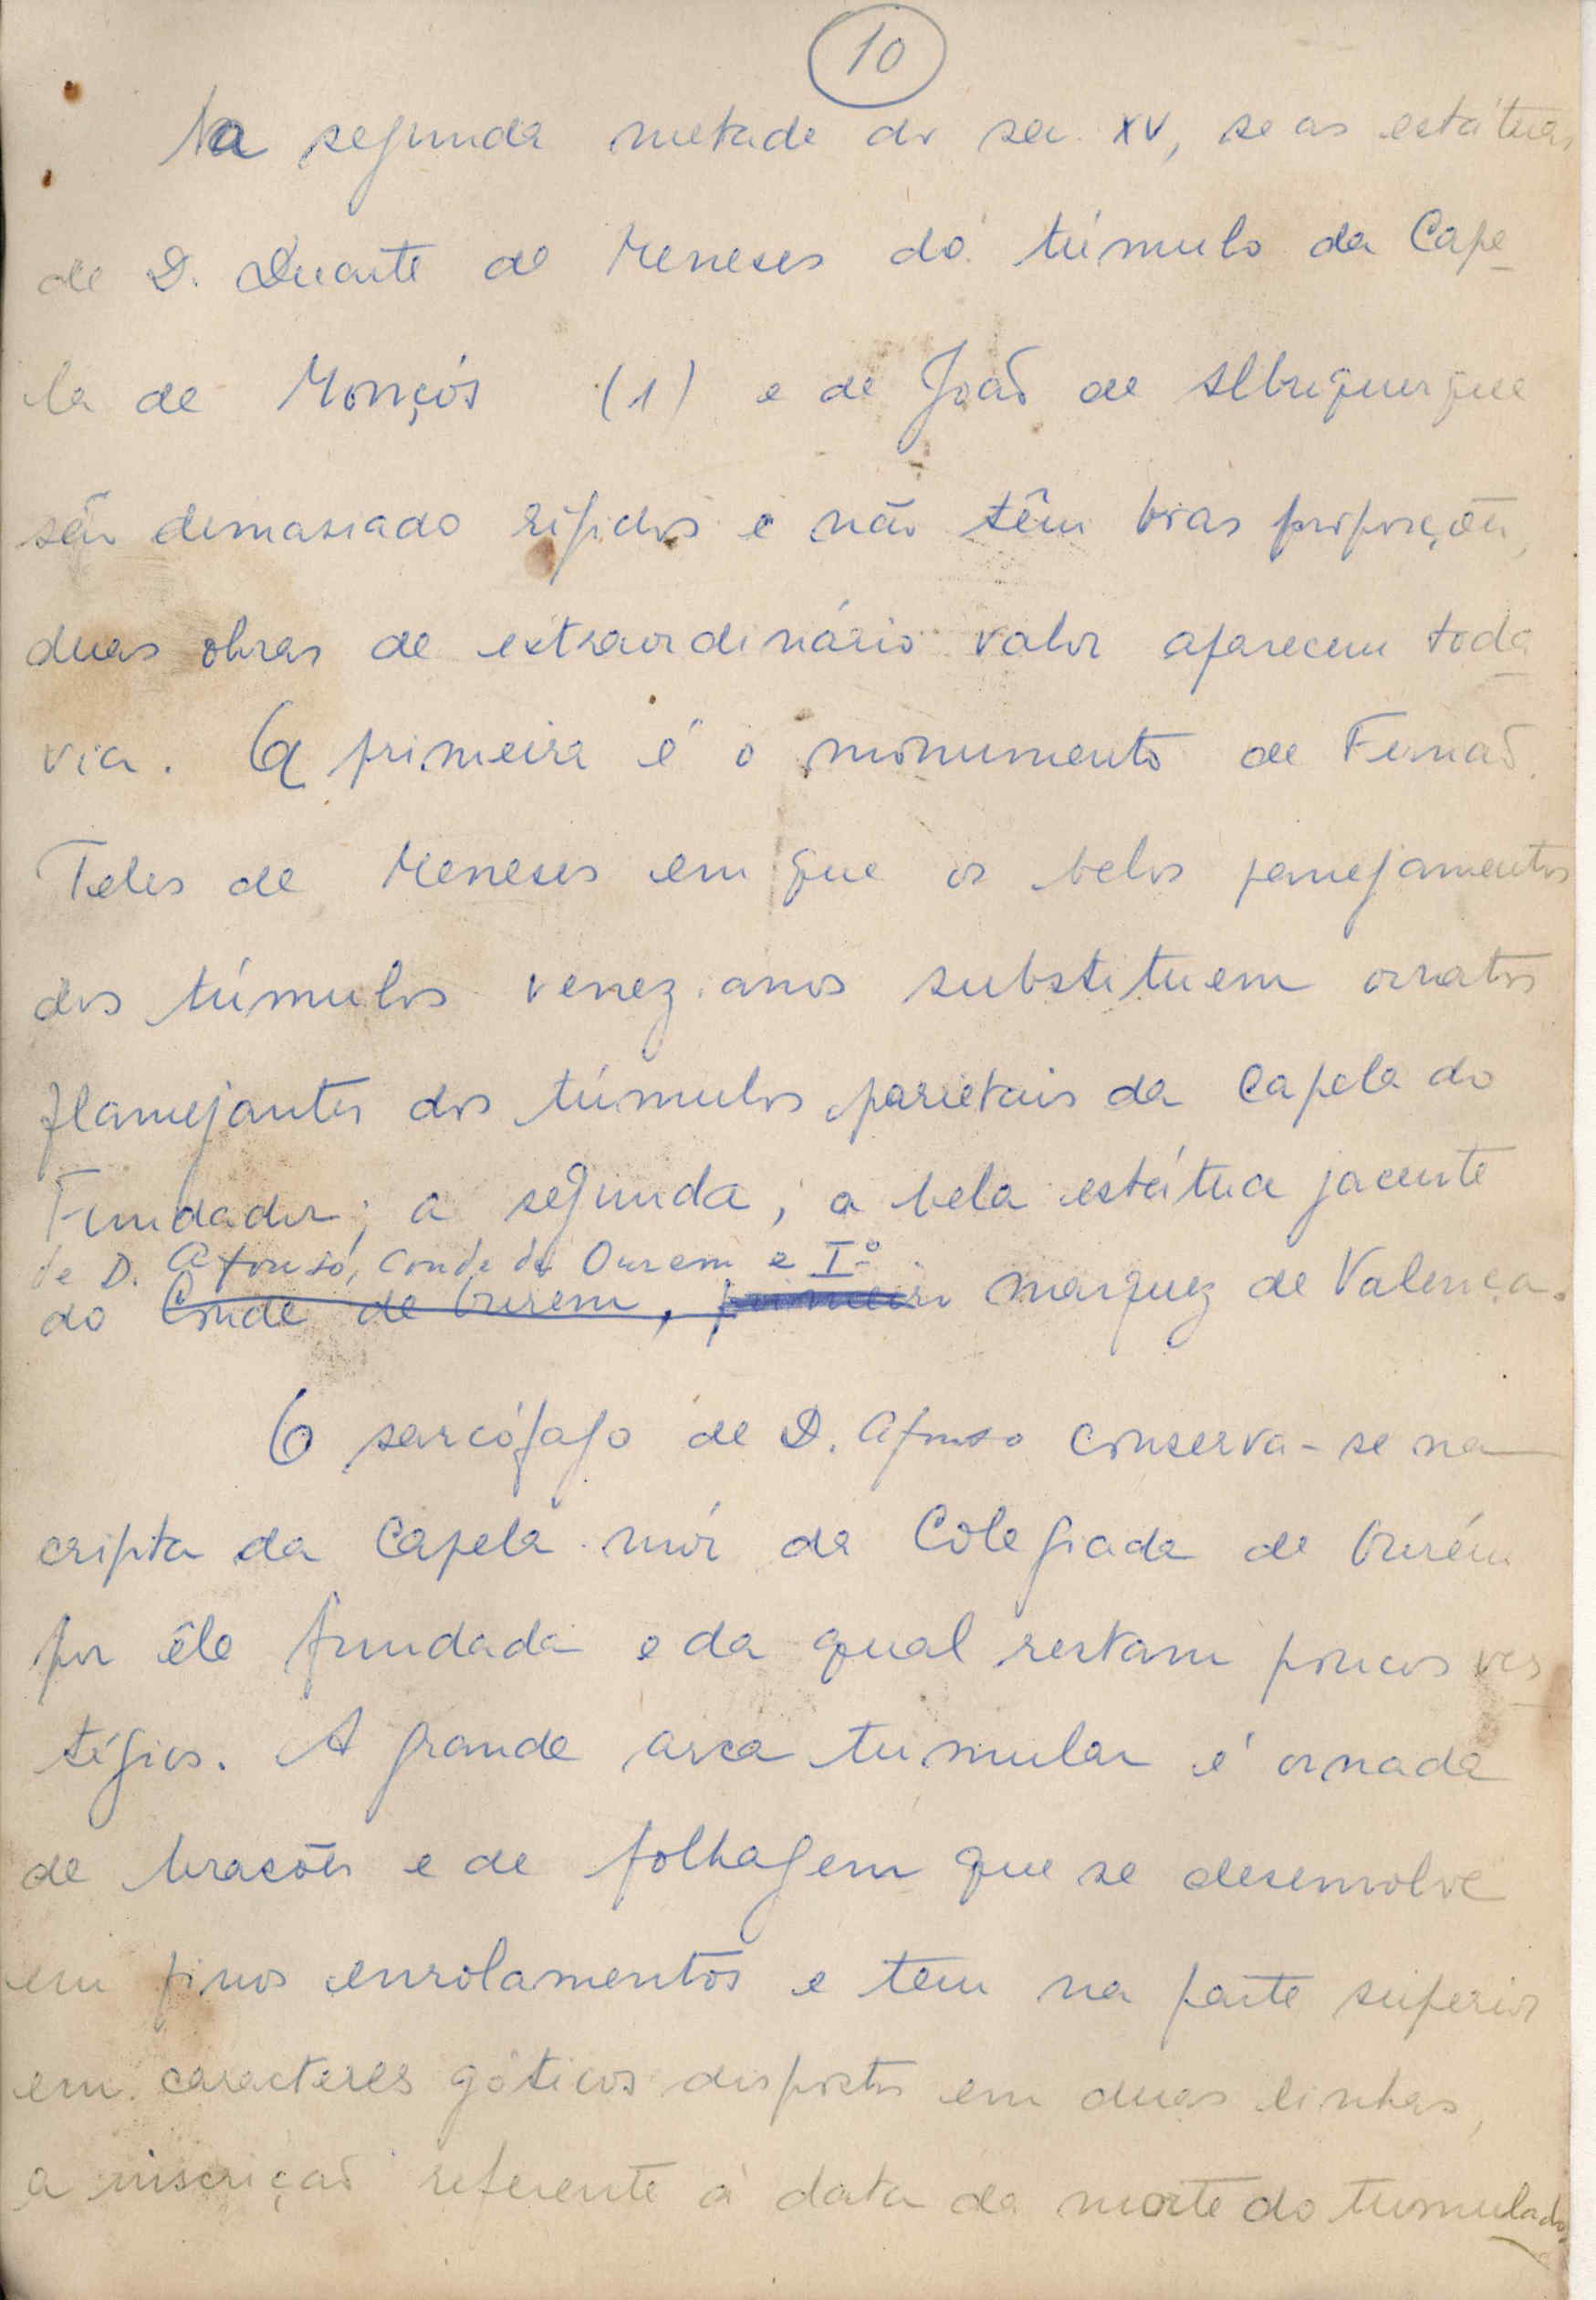 10
Na segunda metade do sec. XV, se as estátuas
de D. Duarte de Meneses do túmulo da Cape
la de Monçós (1) e de João de Albuquerque
são demasiado rígidos e não têm boas proporções,
duas obras de extraordinário valor aparecem toda
via. A primeira é o monumento de Fernão
Teles de Meneses em que os belos panejamentos
dos túmulos venezianos substituem ornatos
flamejantes dos túmulos parietais da Capela do
Fundador; a segunda, a bela estátua jacente
de D. Afonso, Conde de Ourem e Iº
do Conde de Ourem, primeiro marquez de Valença.
O sarcófago de D. Afonso conserva-se na
cripta da Capela mór da Colegiada de Ourém
por êle fundada e da qual restam poucos ves
tígios. A grande arca tumular é ornada
de brasões e de folhagem que se desenvolve
em finos enrolamentos e tem na parte superior
em caracteres góticos dispostos em duas linhas,
a inscrição referente à data da morte do tumulado